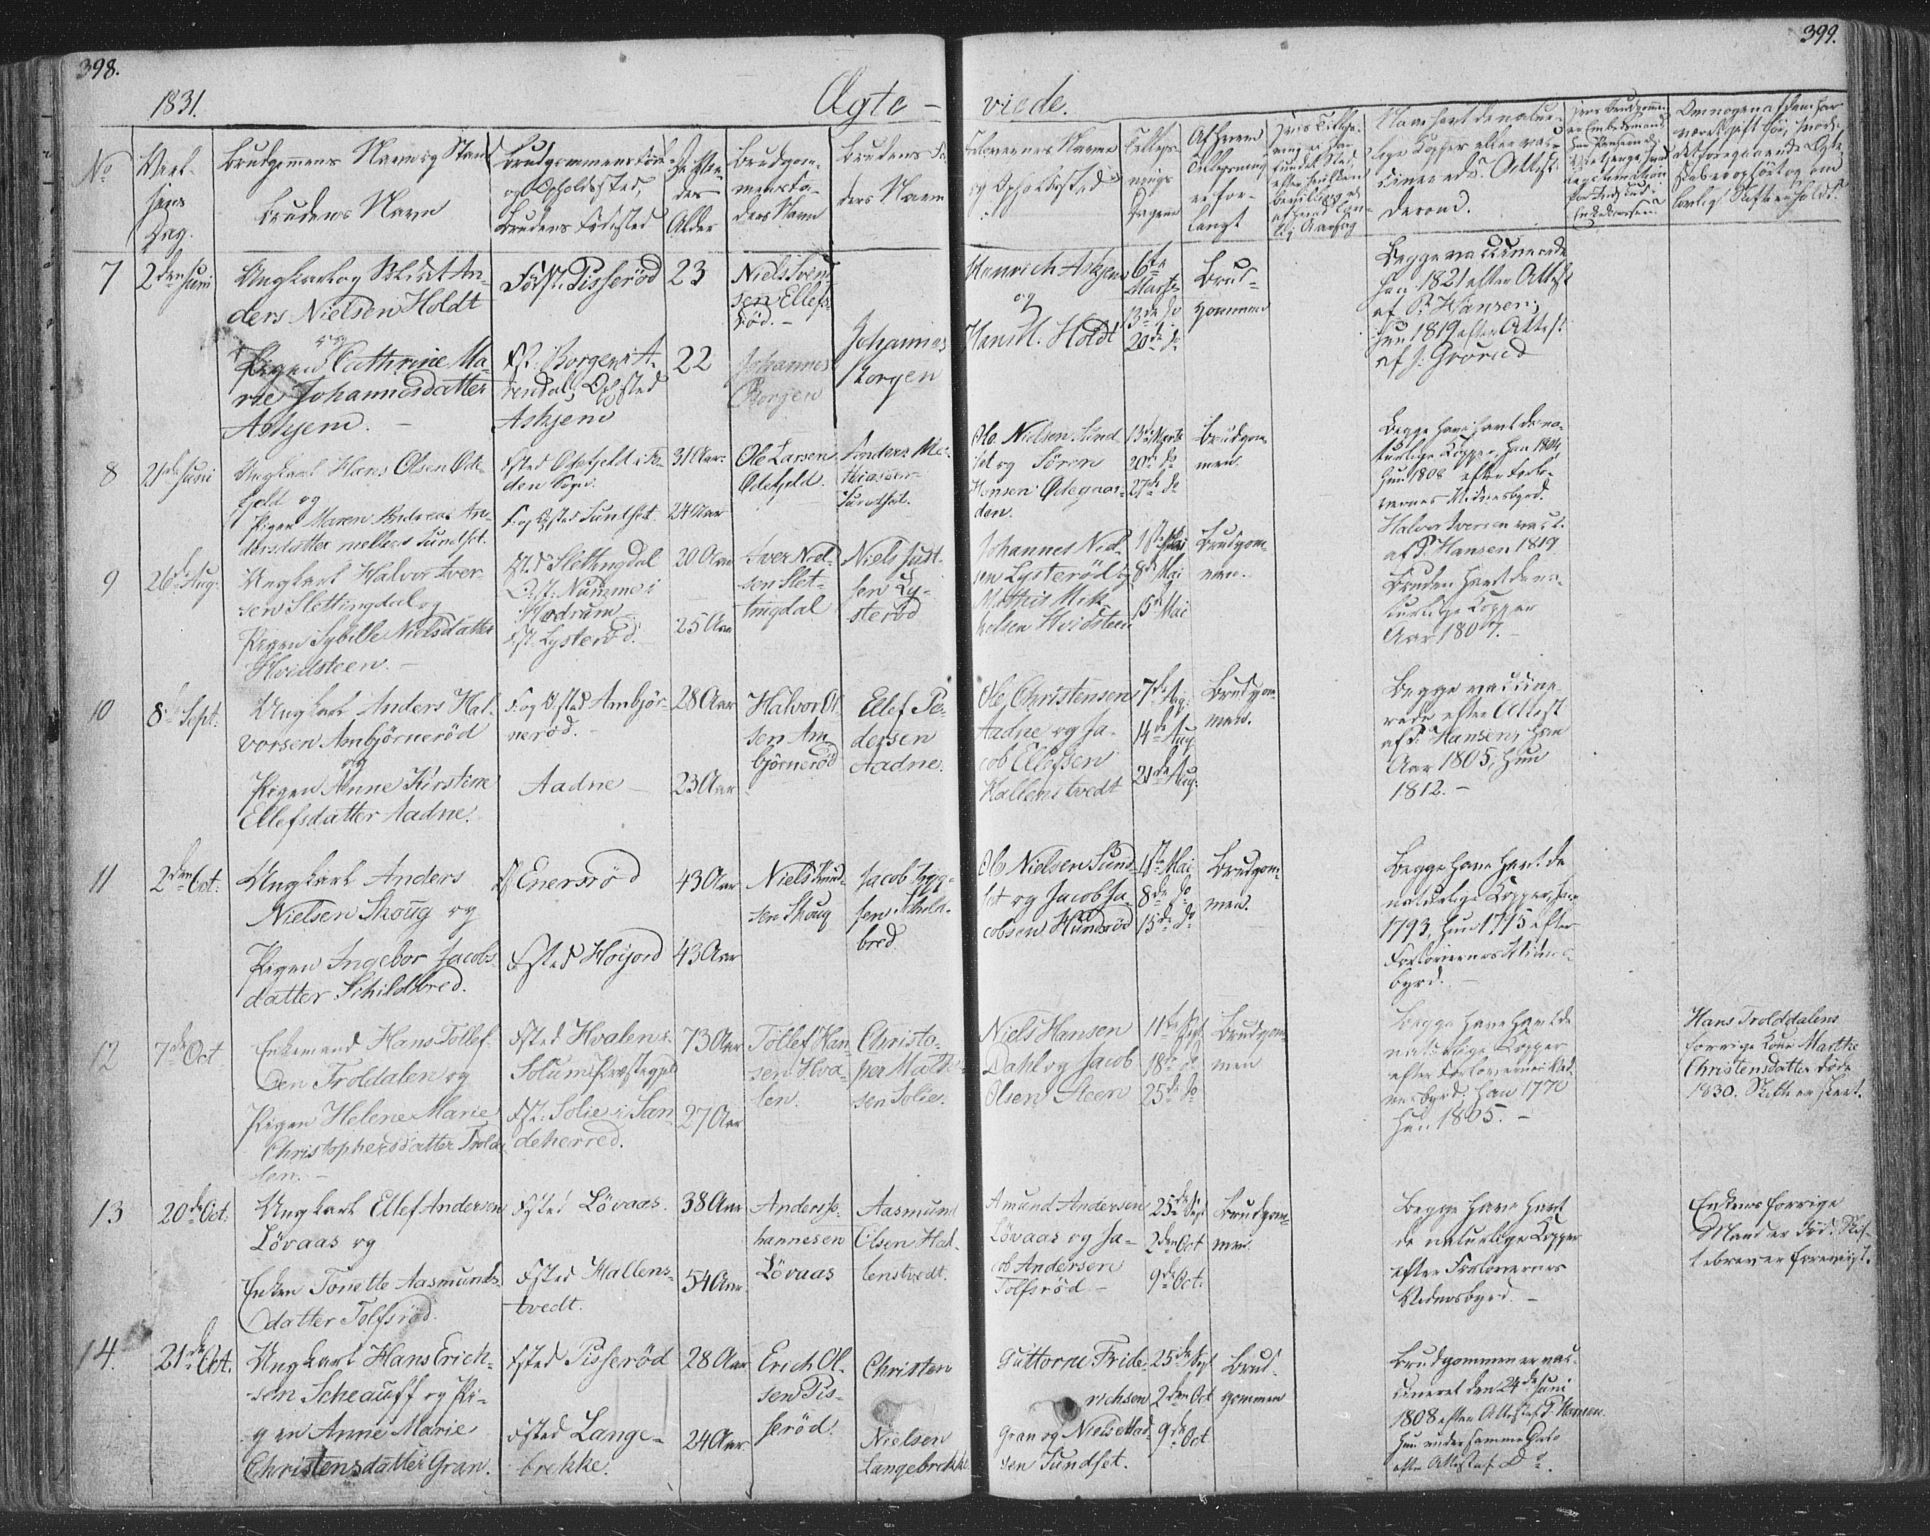 398.
399.
1831.
Ægte - viede.
No
Viel-
sens
Dag.
Brudgommens Navn og Stand
Brudens Navn
Brudgommens Føde
og Opholdssted,
Brudens Fødested
Alder
Brudgom-
mens Fa-
ders Navn
Brudens Fa-
ders Navn
Forlovernes Navne
og Opholdssted
Tillys-
nings
Dagene
Af hvem
Tillysning
er for-
langt
7
2den Juni
Ungkarl og Soldat An-
ders Nielsen Holdt
og
Pigen Cathrine Ma-
rie Johannesdatter
Askjem. -
Fødst. Pisserød
Fst. Borgen i A-
rendal, Opsted
Askjem
23
22
Niels Iver-
sen Ellefs-
rød. -
Johannes
Borgen
Johannes
Borgen
Henrich Askjem
og
Hans M. Holdt
6te
Marts
13de do
20de do
Brud-
gommen
Begge vaccinerede
han 1821 efter Attest
af P. Hansen,
hun 1819 efter Attest
af J. Gorrud
8
21de Juni
Ungkarl Hans Olsen Ode-
fjeld og
Pigen Maren Andreas An-
dersdatter mellem Sundset.
Fsted Odefjeld i Sa-
den Sogn.
F. og Opsted Sundset.
31 Aar.
24 Aar
Ole Larsen
Odefjeld
Anders Ma-
thiassen
Sundset.
Ole Nielsen Sund-
set og Søren
Hansen Ødegaar-
den.
13de Marts
20de do
27de do
Brudgom-
men.
Begge have havt de na-
turlige Kopper, han 1804,
hun 1808 efter Forlo-
vernes Vidnesbyrd.
9
26de Aug.
Ungkarl Halvor Iver-
sen Slettingdal og
Pigen Sybille Nielsdatter
Hvidsteen. -
Fsted Slettingdal
Opst. Numme i
Hedrum -
Fst. Lysterød. -
20 Aar
25 Aar
Iver Niel-
sen Slet-
tingdal
Niels Just-
sen Ly-
sterød
Johannes Niel-
sen Lysterød og
Mathis Mik-
kelsen Hvidsteen
1ste Mai
8de Mai
15de Mai
Brudgom-
men.
Halvor Iversen vacc.
af P. Hansen 1819
Bruden havt de na-
turlige Kopper
Aar 1807. -
10
8de Sept.
Ungkarl Anders Hal-
vorsen Ambjørnerød
og
Pigen Anne Kirstine
Ellefsdatter Aadne.
F. og Opsted Ambjør-
nerød. -
Aadne -
28 Aar
23 Aar
Halvor Ol-
sen Am-
bjørnerød
Ellef Pe-
dersen
Aadne.
Ole Christensen
Aadne og Ja-
cob Ellefsen
Hallenstvedt
7de Aug.
14de Aug.
21de Aug.
Brudgom-
men.
Begge vaccine-
rede efter Attest
af P. Hansen, han
Aar 1805, hun
1812. -
11
2den Oct.
Ungkarl Anders
Nielsen Skoug og
Pigen Ingebor Jacobs-
datter Schildbred.
F. Enersrød
Fsted Höijord
43 Aar
43 Aar
Niels Knud-
sen Skoug
Jacob
sen Schild-
bred
Ole Nielsen Sund-
set og Jacob Ja-
cobsen Hundrød
1ste Mai
8de do
15de do
Brudgom-
men.
Begge have havt de
naturlige Kopper, han
1793, hun 1795 efter
Forlovernes Vidnes-
byrd. -
12
7de Oct
Enkemand Hans Tollef-
sen Troldalen og
Pigen Helene Marie
Christophersdatter Trolda-
len. -
Fsted Hvalen i
Solums Præstegjeld
Fst. Solie i San-
deherred.
73 Aar
27 Aar
Tollef Han-
sen Hva-
len.
Christo-
pher Math-
sen Solie.
Niels Hansen
Dahl og Jacob
Olsen Steen
11te Sept
18de do
25de do
Brudgom-
men
Begge have havt de
naturlige Kopper
efter Forlovernes Vid-
nesbyrd: han 1770
hun 1805. -
Hans Trolddalens
forrige Kone Marthe
Christensdatter døde
1830. Skifte er skeet.
13
20de Oct.
Ungkarl Ellef Andersen
Lövaas og
Enken Tonette Aasmunds-
datter Tolfsrød.
Fsted Lövaas.
Fsted Hallens-
tvedt.
38 Aar
54 Aar.
Anders Jo-
hannesen
Lövaas
Aasmund
Olsen Hal-
lenstvedt.
Amund Andersen
Lövaas og Ja-
cob Andersen
Tolfsrød -
25de Sept
2den Oct
9de Oct.
Brudgom-
men.
Begge have havt
de naturlige Kopper
efter Forlovernes
Vidnesbyrd. -
Enkens forrige
Mand er död. Skif-
tebrev er foreviist.
14.
21de Oct.
Ungkarl Hans Erich-
sen Scheauff og Pi-
gen Anne Marie
Christensdatter Gran.
Fsted Pisserød
Fsted Lange-
brekke.
28 Aar
24 Aar.
Erich Ol-
sen Pis-
serød.
Christen
Nielsen
Langebrekke
Guttorm Fride-
richsen
Gran og Niels Mad-
sen Sundset.
25de Sept
2den Oct
9de Oct.
Brud-
gommen
Brudgommen er vac-
cineret den 24de Juni
1808 efter Attest af P. Hansen.
Hun under samme Dato
efter Attest af Do.